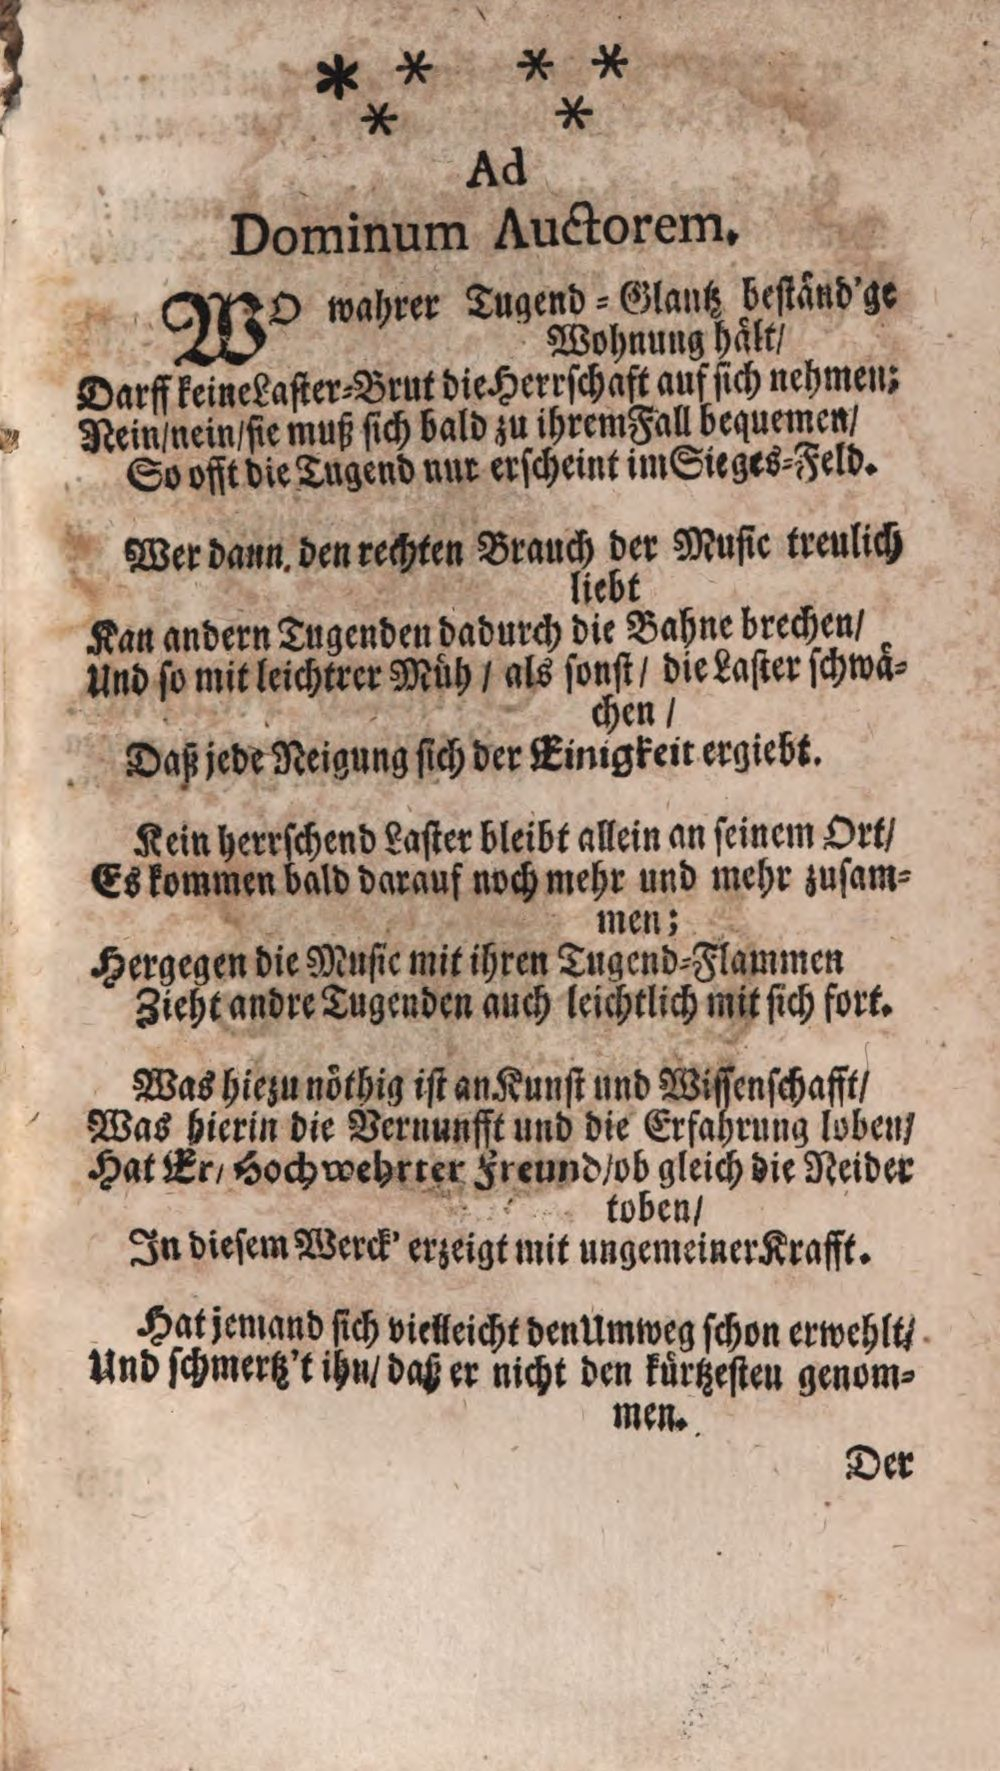 * * * *
* *
Ad
Dominum Auctorem.
WO wahrer Tugend-Glantz beständ'ge
Wohnung hält/
Darff keine Laster-Brut die Herrschaft auf sich nehmen;
Nein/nein/sie muß sich bald zu ihrem Fall bequemen/
So offt die Tugend nur erscheint im Sieges-Feld.
Wer dann den rechten Brauch der Music treulich
liebt
Kan andern Tugenden dadurch die Bahne brechen/
Und so mit leichtrer Müh / als sonst / die Laster schwä-
chen /
Daß jede Neigung sich der Einigkeit ergiebt.
Kein herrschend Laster bleibt allein an seinem Ort/
Es kommen bald darauf noch mehr und mehr zusam-
men;
Hergegen die Music mit ihren Tugend-Flammen
Zieht andre Tugenden auch leichtlich mit sich fort.
Was hiezu nöthig ist an Kunst und Wissenschafft/
Was hierin die Vernunfft und die Erfahrung loben/
Hat Er/ Hochwehrter Freund/ob gleich die Neider
toben/
In diesem Werck' erzeigt mit ungemeiner Krafft.
Hat jemand sich vielleicht den Umweg schon erwehlt/
Und schmertz't ihn/ daß er nicht den kürtzesten genom-
men.
Der